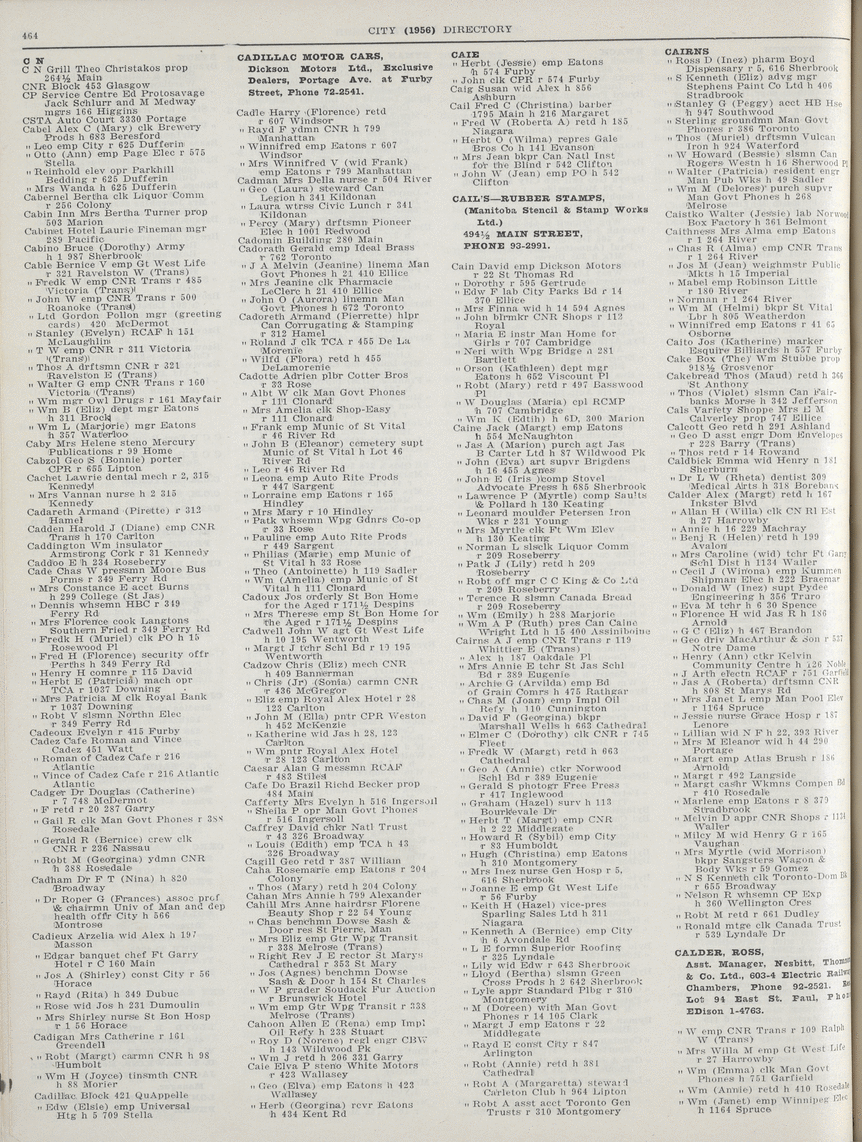 464
CITY (1956) DIRECTORY
C N
C N Grill Theo Christakos prop
264½ Main
CNR Block 453 Glasgow
CP Service Centre Ed Protosavage
Jack Schlurr and M Medway
mgrs 166 Higgins
CSTA Auto Court 3330 Portage
Cabel Alex C (Mary) clk Brewery
Prods h 683 Beresford
" Leo emp City r 625 Dufferin
" Otto (Ann) emp Page Elec r 575
Stella
" Reinhold elev opr Parkhill
Bedding r 625 Dufferin
" Mrs Wanda h 625 Dufferin
Cabernel Bertha clk Liquor Comm
r 256 Colony
Cabin Inn Mrs Bertha Turner prop
503 Marion
Cabinet Hotel Laurie Fineman mgr
289 Pacific
Cabino Bruce (Dorothy) Army
h 1 987 Sherbrook
Cable Bernice V emp Gt West Life
r 321 Ravelston W (Trans)
" Fredk W emp CNR Trans r 485
Victoria (Trans)
" John W emp CNR Trans r 500
Roanoke (Trans)
" Ltd Gordon Pollon mgr (greeting
cards) 420 McDermot
" Stanley (Evelyn) RCAF h 151
McLaughlin
" T W emp CNR r 311 Victoria
(Trans)
" Thos A drftsmn CNR r 321
Ravelston E (Trans)
" Walter G emp CNR Trans r 160
Victoria (Trans)
" Wm mgr Owl Drugs r 161 Mayfair
" Wm B (Eliz) dept mgr Eatons
h 311 Brock
" Wm L (Marjorie) mgr Eatons
h 357 Waterloo
Caby Mrs Helene steno Mercury
Publications r 99 Home
Cabzol Geo S (Bonnie) porter
CPR r 655 Lipton
Cachet Lawrie dental mech r 2, 315
Kennedy
" Mrs Vannan nurse h 2 315
Kennedy
Cadareth Armand (Pirette) r 312
Hamel
Cadden Harold J (Diane) emp CNR
Trans h 170 Carlton
Caddington Wm insulator
Armstrong Cork r 31 Kennedy
Caddoo E h 234 Roseberry
Cade Chas W pressmn Moore Bus
Forms r 349 Ferry Rd
" Mrs Constance E acct Burns
h 299 College (St Jas)
" Dennis whsemn HBC r 349
Ferry Rd
" Mrs Florence cook Langtons
Southern Fried r 349 Ferry Rd
" Fredk H (Muriel) clk PO h 15
Rosewood Pl
" Fred H (Florence) security offr
Perths h 349 Ferry Rd
" Henry H comnre r 115 David
" Herbt E (Patricia) mach opr
TCA r 1037 Downing
" Mrs Patricia M clk Royal Bank
r 1037 Downing
" Robt V slsmn Northn Elec
r 349 Ferry Rd
Cadeoux Evelyn r 415 Furby
Cadez Cafe Roman and Vince
Cadez 451 Watt
" Roman of Cadez Cafe r 216
Atlantic
" Vince of Cadez Cafe r 216 Atlantic
Atlantic
Cadger Dr Douglas (Catherine)
r 7 748 McDermot
" F retd r 20 287 Garry
" Gail R clk Man Govt Phones r 388
Rosedale
" Gerald R (Bernice) crew clk
CNR r 236 Nassau
" Robt M (Georgina) ydmn CNR
h 388 Rosedale
Cadham Dr F T (Nina) h 820
Broadway
" Dr Roper G (Frances) assoc prof
& chairmn Univ of Man and dep
health offr City h 566
Montrose
Cadieux Arzelia wid Alex h 197
Masson
" Edgar banquet chef Ft Garry
Hotel r C 160 Main
" Jos A (Shirley) const City r 56
Horace
" Rayd (Rita) h 349 Dubuc
" Rose wid Jos h 231 Dumoulin
" Mrs Shirley nurse St Bon Hosp
r 1 56 Horace
Cadigan Mrs Catherine r 161
Greendell
" Robt (Margt) carmn CNR h 98
Humbolt
" Wm H (Joyce) tinsmth CNR
h 88 Morier
Cadillac Block 421 QuAppelle
" Edw (Elsie) emp Universal
Htg h 5 709 Stella
CADILLAC MOTOR CARS,
Dickson Motors Ltd., Exclusive
Dealers, Portage Ave. at Furby
Street, Phone 72-2541.
Cadle Harry (Florence) retd
r 607 Windsor
" Rayd F ydmn CNR h 799
Manhattan
" Winnifred emp Eatons r 607
Windsor
" Mrs Winnifred V (wid Frank)
emp Eatons r 799 Manhattan
Cadman Mrs Della nurse r 504 River
" Geo (Laura) steward Can
Legion h 341 Kildonan
" Laura wtrss Civic Lunch r 341
Kildonan
" Percy (Mary) drftsmn Pioneer
Elec h 1001 Redwood
Cadomin Building 280 Main
Cadorath Gerald emp Ideal Brass
r 762 Toronto
" J A Melvin (Jeanine) linemn Man
Govt Phones h 21 410 Ellice
" Mrs Jeanine clk Pharmacie
LeClerc h 21 410 Ellice
" John O (Aurora) linemn Man
Govt Phones h 672 Toronto
Cadoreth Armand (Pierrette) hlpr
Can Corrugating & Stamping
r 312 Hamel
" Roland J clk TCA r 455 De La
Morenie
" Wilfd (Flora) retd h 455
DeLamorenie
Cadotte Adrien plbr Cotter Bros
r 33 Rose
" Albt W clk Man Govt Phones
r 111 Clonard
" Mrs Amelia clk Shop-Easy
r 111 Clonard
" Frank emp Munic of St Vital
r 46 River Rd
" John B (Eleanor) cemetery supt
Munic of St Vital h Lot 46
River Rd
" Leo r 46 River Rd
" Leona emp Auto Rite Prods
r 447 Sargent
" Lorraine emp Eatons r 165
Hindley
" Mrs Mary r 10 Hindley
" Patk whsemn Wpg Gdnrs Co-op
r 33 Rose
" Pauline emp Auto Rite Prods
r 449 Sargent
" Phillas (Marie) emp Munic of
St Vital h 33 Rose
" Theo (Antoinette) h 119 Sadler
" Wm (Amelia) emp Munic of St
Vital h 111 Clonard
Cadoux Jos orderly St Bon Home
for the Aged r 171½ Despins
" Mrs Therese emp St Bon Home for
the Aged r 171½ Despins
Cadwell John W agt Gt West Life
h 10 195 Wentworth
" Margt J tchr Schl Bd r 10 195
Wentworth
Cadzow Chris (Eliz) mech CNR
h 409 Bannerman
" Chris (Jr) (Sonia) carmn CNR
r 436 McGregor
" Eliz emp Royal Alex Hotel r 28
123 Carlton
" John M (Ella) pntr CPR Weston
h 452 McKenzie
" Katherine wid Jas h 28, 123
Carlton
" Wm pntr Royal Alex Hotel
r 28 123 Carlton
Caesar Alan G messmn RCAF
r 483 Stiles
Cafe Do Brazil Richd Becker prop
484 Main
Cafferty Mrs Evelyn h 516 Ingersoll
" Sheila P opr Man Govt Phones
r 516 Ingersoll
Caffrey David chkr Natl Trust
r 43 326 Broadway
" Louis (Edith) emp TCA h 43
326 Broadway
Cagill Geo retd r 387 William
Caha Rosemarie emp Eatons r 204
Colony
" Thos (Mary) retd h 204 Colony
Cahan Mrs Annie h 799 Alexander
Cahill Mrs Anne hairdrsr Florene
Beauty Shop r 22 54 Young
" Chas benchmn Dowse Sash &
Door res St Pierre, Man
" Mrs Eliz emp Gtr Wpg Transit
r 338 Melrose (Trans)
" Right Rev J E rector St Marys
Cathedral r 353 St Mary
" Jos (Agnes) benchmn Dowse
Sash & Door h 154 St Charles
" W P grader Soudack Fur Auction
r Brunswick Hotel
" Wm emp Gtr Wpg Transit r 338
Melrose (Trans)
Cahoon Allen E (Rena) emp Impl
Oil Refy h 238 Stuart
" Roy D (Norene) regl engr CBW
h 143 Wildwood Pk
" Wm J retd h 206 331 Garry
Caie Elva P steno White Motors
r 423 Wallasey
" Geo (Elva) emp Eatons h 423
Wallasey
" Herb (Georgina) rcvr Eatons
h 434 Kent Rd
CAIE
" Herbt (Jessie) emp Eatons
h 574 Furby
" John clk CPR r 574 Furby
Caig Susan wid Alex h 856
Ashburn
Cail Fred C (Christina) barber
1795 Main h 216 Margaret
" Fred W (Roberta A) retd h 185
Niagara
" Herbt O (Wilma) repres Gale
Bros Co h 141 Evanson
" Mrs Jean bkpr Can Natl Inst
for the Blind r 542 Clifton
" John W (Jean) emp PO h 542
Clifton
CAIL'S—RUBBER STAMPS,
(Manitoba Stencil & Stamp Works
Ltd.)
494½ MAIN STREET,
PHONE 93-2991.
Cain David emp Dickson Motors
r 22 St Thomas Rd
" Dorothy r 595 Gertrude
" Edw F lab City Parks Bd r 14
370 Ellice
" Mrs Finna wid h 14 594 Agnes
" John blrmkr CNR Shops r 113
Royal
" Maria E instr Man Home for
Girls r 707 Cambridge
" Neri with Wpg Bridge A 281
Bartlett
" Orson (Kathleen) dept mgr
Eatons h 652 Viscount Pl
" Robt (Mary) retd r 497 Basswood
Pl
" W Douglas (Maria) cpl RCMP
h 707 Cambridge
" Wm K (Edith) h 6D, 300 Marion
Caine Jack (Margt) emp Eatons
h 554 McNaughton
" Jas A (Marion) purch agt Jas
B Carter Ltd h 87 Wildwood Pk
" John (Eva) art supvr Brigdens
h 16 455 Agnes
" John E (Iris) comp Stovel
Advocate Press h 685 Sherbrook
" Lawrence P (Myrtle) comp Saults
& Pollard h 130 Keating
" Leonard moulder Petersen Iron
Wks r 231 Young
" Mrs Myrtle clk Ft Wm Elev
h 130 Keating
" Norman L slsclk Liquor Comm
r 209 Roseberry
" Patk J (Lily) retd h 209
Roseberry
" Robt off mgr C C King & Co Ltd
r 209 Roseberry
" Terence R slsmn Canada Bread
r 209 Roseberry
" Wm (Emily) h 288 Marjorie
" Wm A P (Ruth) pres Can Caine
Wright Ltd h 15 400 Assiniboine
Cairns A J emp CNR Trans r 119
Whittier E (Trans)
" Alex h 187 Oakdale Pl
" Mrs Annie E tchr St Jas Schl
Bd r 289 Eugenie
" Archie G (Arvilda) emp Bd
of Grain Comrs h 475 Rathgar
" Chas M (Joan) emp Impl Oil
Refy h 110 Cunnington
" David F (Georgina) bkpr
Marshall Wells h 663 Cathedral
" Elmer C (Dorothy) clk CNR r 745
Fleet
" Fredk W (Margt) retd h 663
Cathedral
" Geo A (Annie) ctkr Norwood
Schl Bd r 389 Eugenie
" Gerald S photogr Free Press
r 417 Inglewood
" Graham (Hazel) surv h 113
Bourkevale Dr
" Herbt T (Margt) emp CNR
h 2 22 Middlegate
" Howard R (Sybil) emp City
r 83 Humboldt
" Hugh (Christina) emp Eatons
h 310 Montgomery
" Mrs Inez nurse Gen Hosp r 5,
616 Sherbrook
" Joanne E emp Gt West Life
r 56 Furby
" Keith H (Hazel) vice-pres
Sparling Sales Ltd h 311
Niagara
" Kenneth A (Bernice) emp City
h 6 Avondale Rd
" L E formn Superior Roofing
r 325 Lyndale
" Lily wid Edw r 643 Sherbrook
" Lloyd (Bertha) slsmn Green
Cross Prods h 2 642 Sherbrook
" Lyle appr Standard Plbg r 310
Montgomery
" M (Doreen) with Man Govt
Phones r 14 105 Clark
" Margt J emp Eatons r 22
Middlegate
" Rayd E const City r 847
Arlington
" Robt (Annie) retd h 381
Cathedral
" Robt A (Margaretta) steward
Carleton Club h 964 Lipton
" Robt A asst acct Toronto Gen
Trusts r 310 Montgomery
CAIRNS
" Ross D (Inez) pharm Boyd
Dispensary r 5, 616 Sherbrook
" S Kenneth (Eliz) advg mgr
Stephens Paint Co Ltd h 406
Stradbrook
" Stanley G (Peggy) acct HB Hse
h 947 Southwood
" Sterling groundmn Man Govt
Phones r 386 Toronto
" Thos (Muriel) drftsmn Vulcan
Iron h 924 Waterford
" W Howard (Bessie) slsmn Can
Rogers Westn h 16 Sherwood Pl
" Walter (Patricia) resident engr
Man Pub Wks h 49 Sadler
" Wm M (Delores) purch supvr
Man Govt Phones h 268
Melrose
Caistko Walter (Jessie) lab Norwood
Box Factory h 361 Belmont
Caithness Mrs Alma emp Eatons
r 1 264 River
" Chas R (Alma) emp CNR Trans
r 1 264 River
" Jos M (Jean) weighmstr Public
Mkts h 15 Imperial
" Mabel emp Robinson Little
r 180 River
" Norman r 1 264 River
" Wm M (Helmi) bkpr St Vital
Lbr h 805 Weatherdon
" Winnifred emp Eatons r 41 65
Osborne
Caito Jos (Katherine) marker
Esquire Billiards h 557 Furby
Cake Box (The) Wm Stubbe prop
918½ Grosvenor
Cakebread Thos (Maud) retd h 366
St Anthony
" Thos (Violet) slsmn Can Fair-
banks Morse h 342 Jefferson
Cals Variety Shoppe Mrs E M
Calverley prop 747 Ellice
Calcott Geo retd h 291 Ashland
" Geo D asst engr Dom Envelopes
r 228 Barry (Trans)
" Thos retd r 14 Rowand
Caldbick Emma wid Henry n 181
Sherburn
" Dr L W (Rheta) dentist 309
Medical Arts h 318 Borebank
Calder Alex (Margt) retd h 167
Inkster Blvd
" Allan H (Willa) clk CN Rl Est
h 27 Harrowby
" Annie h 16 229 Machray
" Benj R (Helen) retd h 199
Avalon
" Mrs Caroline (wid) tchr Ft Garry
Schl Dist h 1134 Waller
" Cecil J (Winona) emp Kummen
Shipman Elec h 222 Braemar
" Donald W (Inez) supt Pydee
Engineering h 356 Truro
" Eva M tchr h 6 30 Spence
" Florence H wid Jas R h 186
Arnold
" G C (Eliz) h 467 Brandon
" Geo driv MacArthur & Son r 537
Notre Dame
" Henry (Ann) ctkr Kelvin
Community Centre h 126 Noble
" J Arth electn RCAF r 751 Garfield
" Jas A (Roberta) drftsmn CNR
h 808 St Marys Rd
" Mrs Janet L emp Man Pool Elev
r 1164 Spruce
" Jessie nurse Grace Hosp r 187
Lenore
" Lillian wid N F h 22, 393 River
" Mrs M Eleanor wid h 44 290
Portage
" Margt emp Atlas Brush r 186
Arnold
" Margt r 492 Langside
" Margt cashr Wkmns Compen Bd
r 410 Rosedale
" Marlene emp Eatons r 8 379
Stradbrook
" Melvin D appr CNR Shops r 1134
Waller
" Milcy M wid Henry G r 165
Vaughan
" Mrs Myrtle (wid Morrison)
bkpr Sangsters Wagon &
Body Wks r 59 Gomez
" N S Kenneth clk Toronto-Dom Bk
r 655 Broadway
" Nelson R whsemn CP Exp
h 360 Wellington Cres
" Robt M retd r 661 Dudley
" Ronald mtge clk Canada Trust
r 539 Lyndale Dr
CALDER, ROSS,
Asst. Manager, Nesbitt, Thomson
& Co. Ltd., 603-4 Electric Railway
Chambers, Phone 92-2521.
Lot 94 East St. Paul,
EDison 1-4763.
" W emp CNR Trans r 109 Ralph
W (Trans)
" Mrs Willa M emp Gt West Life
r 27 Harrowby
" Wm (Emma) clk Man Govt
Phones h 751 Garfield
" Wm (Annie) retd h 410 Rosedale
" Wm (Janet) emp Winnipeg Elec
h 1164 Spruce